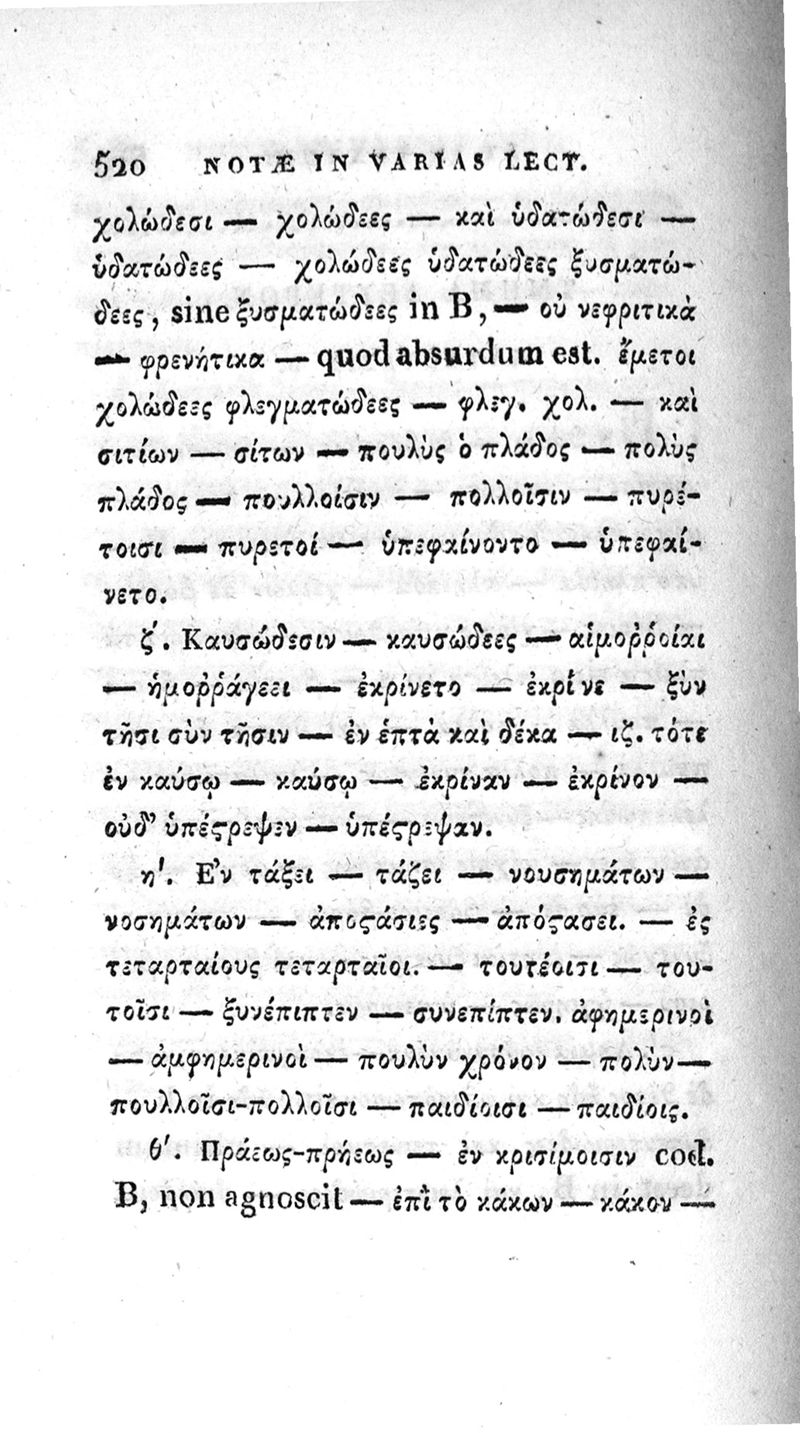 520 NOTÆ IN VARIAS LECT.
χολώδεσι — χολώδεες — καὶ ὑδατώδεσι —
ὑδατώδεες — χολώδεες ὑδατώδεες ξυσματώ-
δεες, sine ξυσματώδεες in B, — οὐ νεφριτικὰ
— φρενήτικα — quod absurdum est. ἔμετοι
χολώδεες φλεγματώδεες — φλεγ. χολ. — καὶ
σιτίων — σίτων — πουλὺς ὁ πλάδος — πολὺς
πλάδος — πουλλοίσιν — πολλοῖσιν — πυρέ-
τοισι — πυρετοί — ὑπεφαίνοντο — ὑπεφαί-
νετο.
ζ´. Καυσώδεσιν — καυσώδεες — αἱμοῤῥοίαι
— ἡμοῤῥάγεει — ἐκρίνετο — ἐκρίνε — ξὺν
τῇσι σὺν τῇσιν — ἐν ἑπτὰ καὶ δέκα — ιζ. τότε
ἐν καύσῳ — καύσῳ — ἐκρίναν — ἐκρίνον —
οὐδ’ ὑπέϛρεψεν — ὑπέϛρεψαν.
η´. Ε’ν τάξει — τάζει — νουσημάτων —
νοσημάτων — ἀποϛάσιες — ἀπόϛασει. — ἐς
τεταρταίους τεταρταῖοι. — τουτέοισι — του-
τοῖσι — ξυνέπιπτεν — συνεπίπτεν. ἀφημερινοὶ
— ἀμφημερινοὶ — πουλὺν χρόνον — πολὺν —
πουλλοῖσι-πολλοῖσι — παιδίοισι — παιδίοις.
θ´. Πράεως-πρήεως — ἐν κρισίμοισιν cod.
B, non agnoscit — ἐπὶ τὸ κάκων — κάκον —